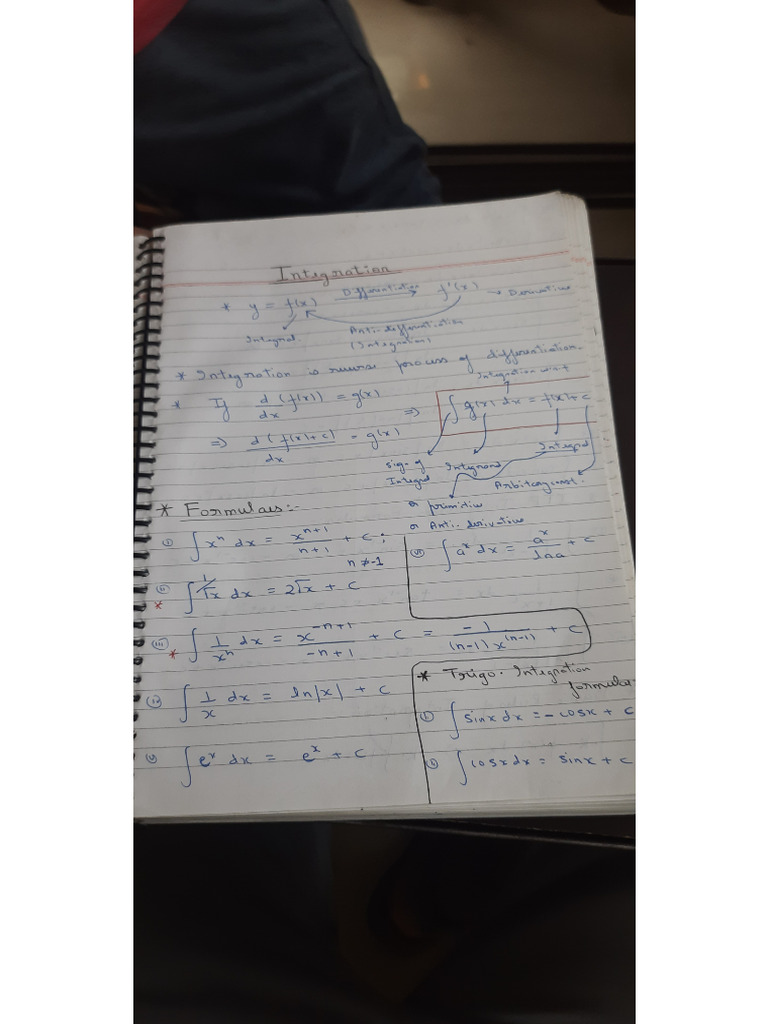 Integration
* y = f(x) Differentiation → f'(x) → Derivative
Integral Anti-differentiation
(Integration)
* Integration is reverse process of differentiation.
Integration w.r.t
* If d/dx (f(x)) = g(x) ⇒ ∫ g(x) dx = f(x) + c
⇒ d(f(x)+c)/dx = g(x)
sign of Integral
Integrand
Integral
Arbitary const.
or primitive
or Anti-derivative
* Formulaes:-
(i) ∫ xⁿ dx = xⁿ⁺¹/(n+1) + c ; n ≠ -1
(ii) * ∫ 1/√x dx = 2√x + c
(iii) * ∫ 1/xⁿ dx = x⁻ⁿ⁺¹/(-n+1) + c = -1/((n-1) x⁽ⁿ⁻¹⁾) + c
(iv) ∫ 1/x dx = ln|x| + c
(v) ∫ eˣ dx = eˣ + c
(vi) ∫ aˣ dx = aˣ/lna + c
* Trigo. Integration
formula
(i) ∫ sinx dx = - cosx + c
(ii) ∫ cosx dx = sinx + c